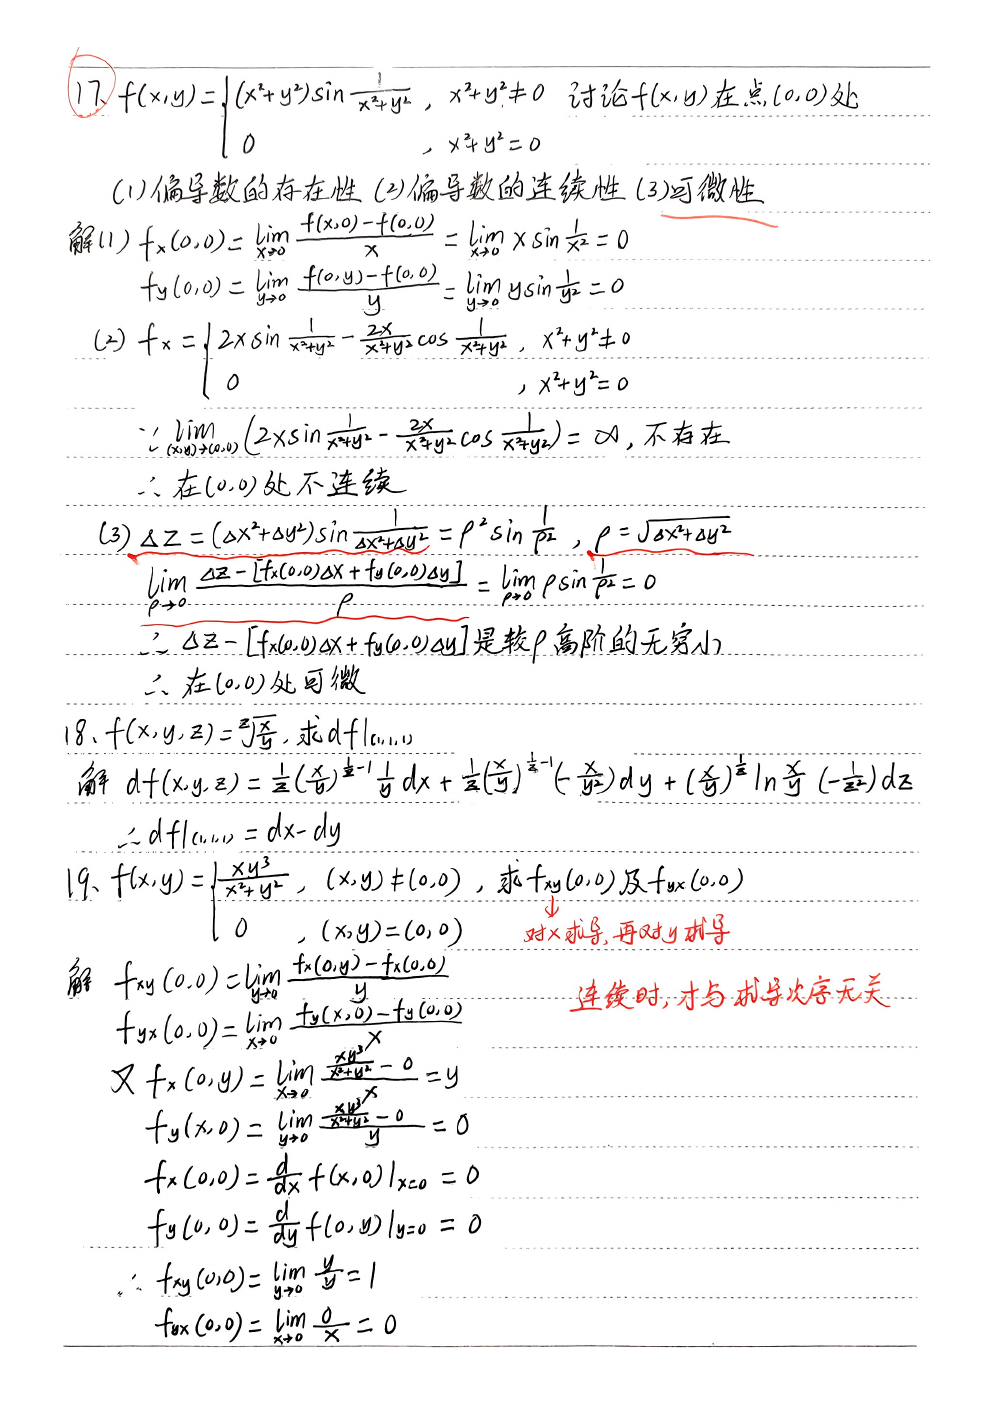 17、f(x,y)={(x²+y²)sin 1/(x²+y²), x²+y²≠0 讨论f(x,y)在点(0,0)处
0 , x²+y²=0
(1)偏导数的存在性 (2)偏导数的连续性 (3)可微性
解(1) fx(0,0)=lim x→0 (f(x,0)-f(0,0))/x = lim x→0 x sin 1/x² = 0
fy(0,0)=lim y→0 (f(0,y)-f(0,0))/y = lim y→0 y sin 1/y² = 0
(2) fx={2x sin 1/(x²+y²) - 2x/(x²+y²) cos 1/(x²+y²), x²+y²≠0
0 , x²+y²=0
∵ lim (x,y)→(0,0) (2x sin 1/(x²+y²) - 2x/(x²+y²) cos 1/(x²+y²)) = ∞, 不存在
∴ 在(0,0)处不连续
(3) Δz=(Δx²+Δy²)sin 1/(Δx²+Δy²) = ρ² sin 1/ρ², ρ=√(Δx²+Δy²)
lim ρ→0 (Δz-[fx(0,0)Δx+fy(0,0)Δy])/ρ = lim ρ→0 ρ sin 1/ρ² = 0
∴ Δz-[fx(0,0)Δx+fy(0,0)Δy]是较ρ高阶的无穷小
∴ 在(0,0)处可微
18、f(x,y,z)=ᶻ√(x/y), 求df|(1,1,1)
解 df(x,y,z)=1/z (x/y)^(1/z-1) 1/y dx + 1/z (x/y)^(1/z-1) (-x/y²)dy + (x/y)^(1/z) ln x/y (-1/z²)dz
∴ df|(1,1,1) = dx-dy
19、f(x,y)={xy³/(x²+y²), (x,y)≠(0,0), 求fxy(0,0)及fyx(0,0)
0 , (x,y)=(0,0)
↓
对x求导,再对y求导
解 fxy(0,0)=lim y→0 (fx(0,y)-fx(0,0))/y
连续时,才与求导次序无关
fyx(0,0)=lim x→0 (fy(x,0)-fy(0,0))/x
又 fx(0,y)=lim x→0 (xy³/(x²+y²) - 0)/x = y
fy(x,0)=lim y→0 (xy³/(x²+y²) - 0)/y = 0
fx(0,0)=d/dx f(x,0)|x=0 = 0
fy(0,0)=d/dy f(0,y)|y=0 = 0
∴ fxy(0,0)=lim y→0 y/y = 1
fyx(0,0)=lim x→0 0/x = 0